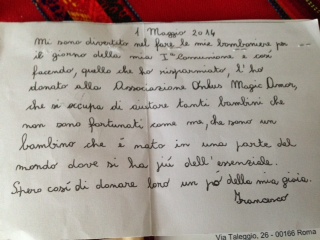 1 Maggio 2014
Mi sono divertito nel fare le mie bomboniere per
il giorno della mia Iª Comunione e così
facendo, quello che ho risparmiato, l'ho
donato alla Associazione Onlus Magic Amor,
che si occupa di aiutare tanti bambini che
non sono fortunati come me, che sono un
bambino che é nato in una parte del
mondo dove si ha piú dell'essenziale.
Spero così di donare loro un pó della mia gioia.
Francesco
Via Taleggio, 26 - 00166 Roma